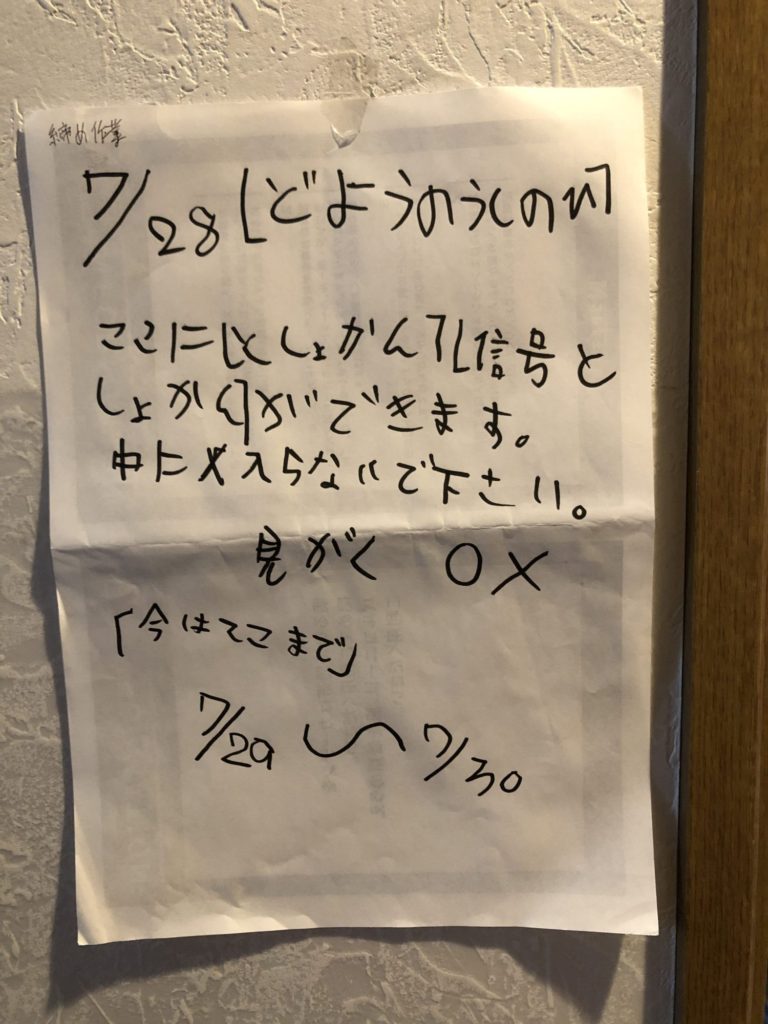 締め作業
7/28「どようのうしのひ」
ここに「としょかん」「信号と
しょかん」ができます。
中に入らないで下さい。
見がく O×
「今はここまで」
7/29 〜 7/30